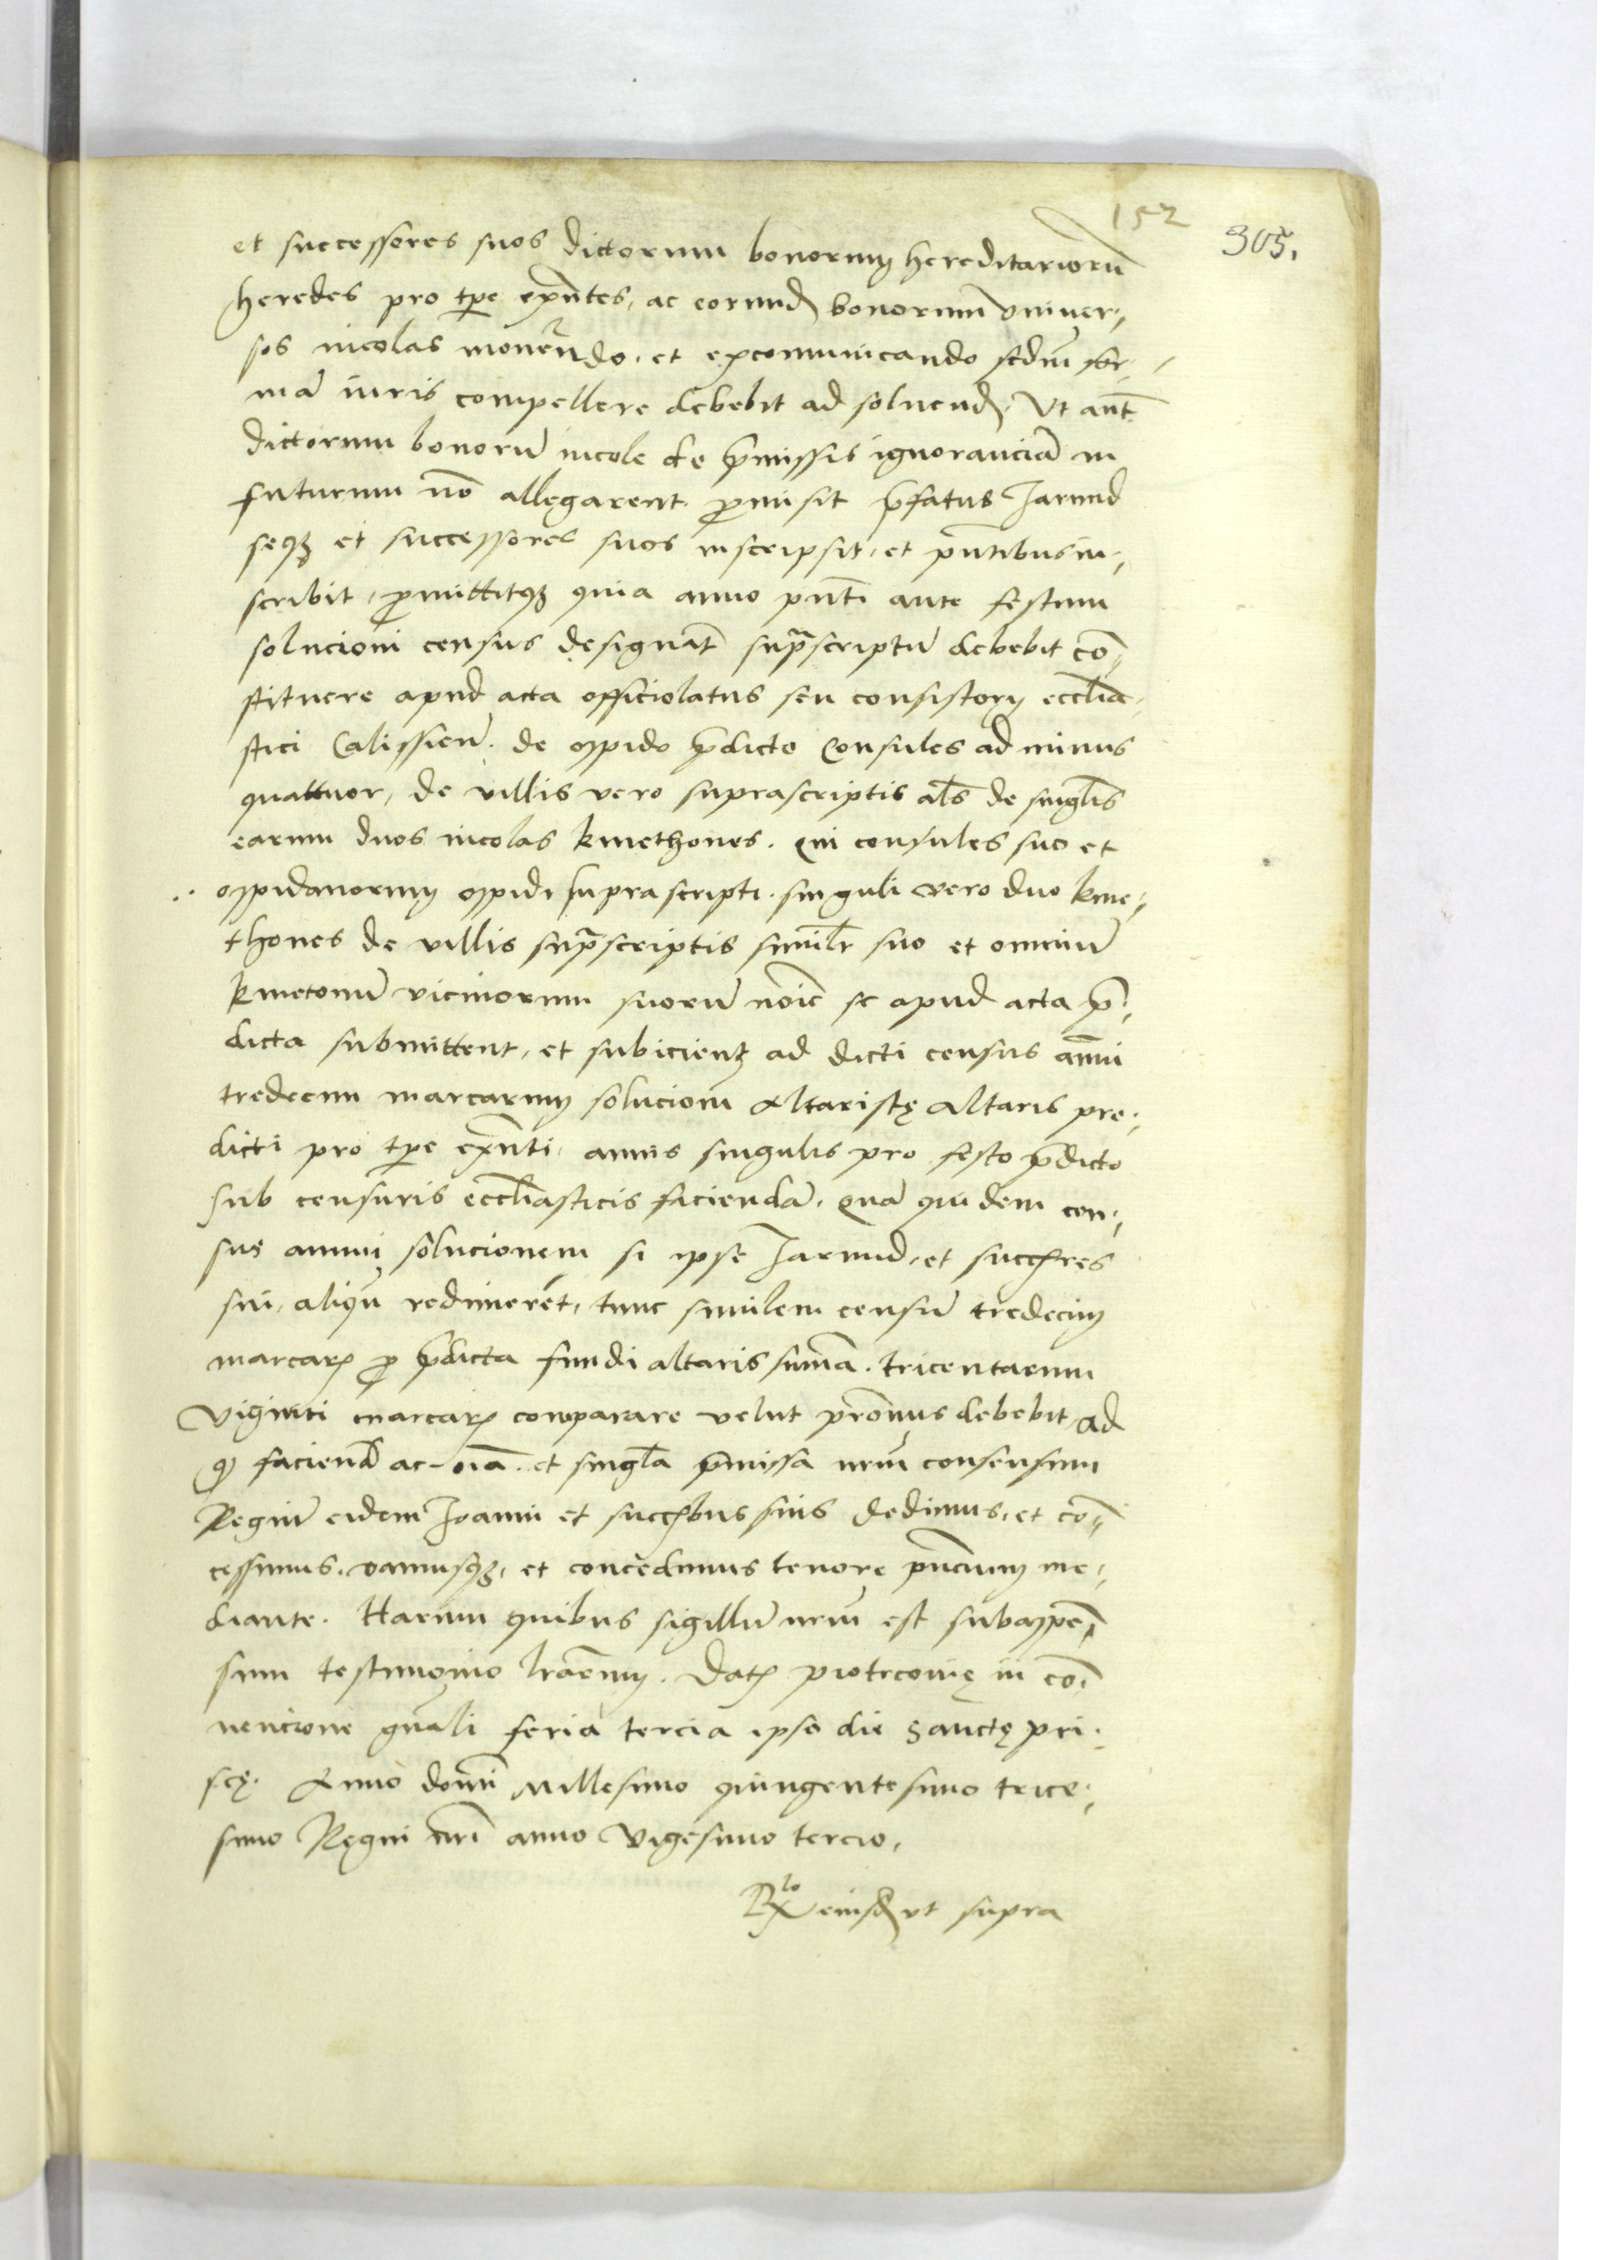 152
305.
et successores suos dictorum bonorum hereditariorū
heredes pro tpe exn̄tes, ac eorund bonorum univer„
sos incolas monēndo, et excomunicando scdm for„
mā iuris compellere debebit ad solvend. Ut aut̄
dictorum bonorū incole de p̄missis ignoranciā in
futurum nō allegarent promisit p̄fatus Jarand
seqȝ et successores suos inscripsit, et pn̄tibus in„
scribit, promittitqȝ quia anno pn̄ti ante festum
solucioni census designat̄ sup̄ascriptū debebit cō„
stituere apud acta officiolatus seu consistorij eccl̄ia„
stici Calissien̄. de oppido p̄dicto Consules ad minus
quattuor, de villis vero suprascriptis al̄s de singl̄is
earum duos incolas kmethones. Qui consules suo et
oppidanorum oppidi suprascripti. singuli vero duo kme„
thones de villis sup̄ascriptis similr̄ suo et omniū
kmetonū vicinorum suorū noīe se apud acta p̄„
dicta submittent, et subicient ad dicti census annui
tredecim marcarum solucioni Altaristę Altaris pre„
dicti pro tpe exn̄ti, annis singulis pro festo p̄dicto
sub censuris eccl̄iasticis faciendā. Quā quidem cen„
sus annui solucionem si ipse Jarand, et succ̄res
sui, aliqn̄ redimerēt, tunc similem censū tredecim
marcarꝝ p p̄dicta fundi altaris sum̄a. tricentarum
viginti marcarꝝ comparare velut p̄ronus debebit, Ad
qd faciend ac oīa. et singl̄a p̄missa nrm̄ consensum
Regiū eidem Joanni et succ̄bus suis dedimus, et cō„
cessimus. damusqȝ, et concedimus tenore pn̄cium me„
diante. Harum quibus sigillū nrm̄ est subappen„
sum testimonio lr̄arum. Datꝝ piotrcovię in cō„
vencione gn̄ali feria tercia ipso die Sanctę pri„
scę. Anno domi Millesimo quingentesimo trice„
simo Regni nr̄i anno Vigesimo tercio.
R̄lo eiusd ut supra